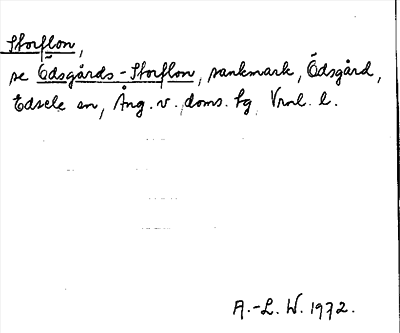 Storflon,
se Ödsgårds-Storflon, sankmark, Ödsgård,
Edsele sn, Ång. v. doms. fg Vrnl. l.
A.-L. W. 1972.